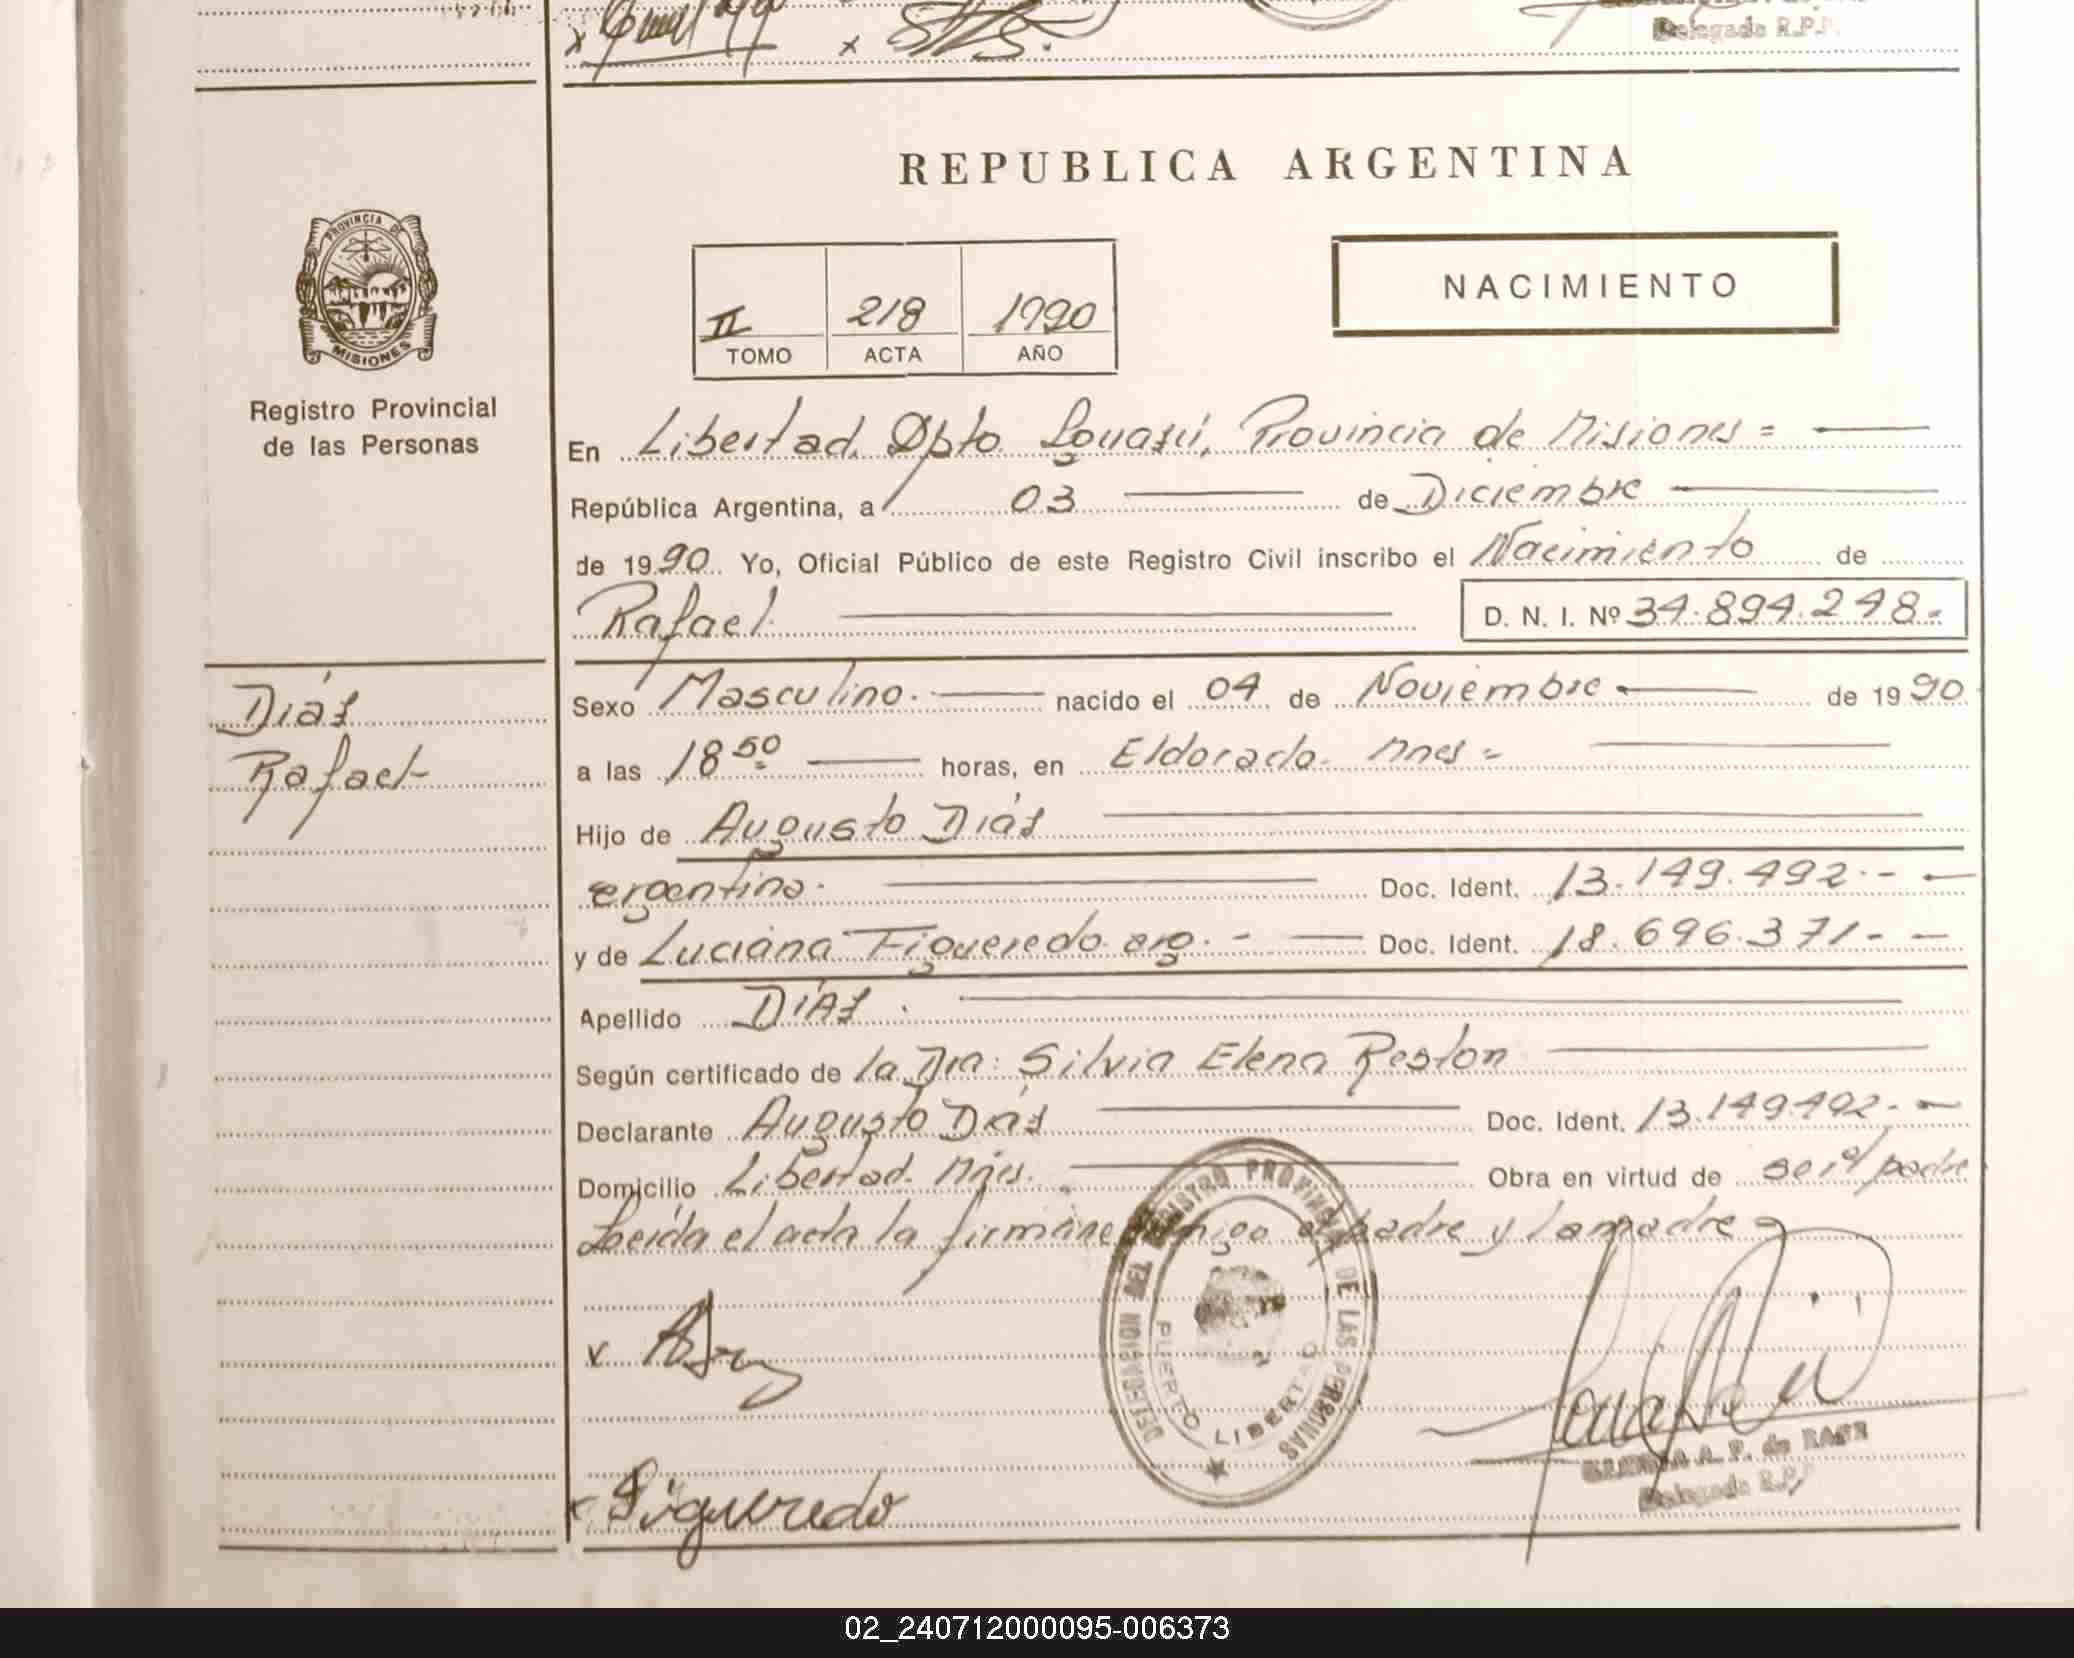 Delegado R.P.P.
REPUBLICA ARGENTINA
PROVINCIA DE
MISIONES
Registro Provincial
de las Personas
NACIMIENTO
II 218 1990
TOMO ACTA AÑO
En Libertad, Dpto. Iguasú, Provincia de Misiones =
República Argentina, a 03 de Diciembre
de 1990 Yo, Oficial Público de este Registro Civil inscribo el Nacimiento de
Rafael. D. N. I. Nº 34.894.248.-
Diás
Rafael
Sexo Masculino. nacido el 04 de Noviembre de 1990
a las 18 50 horas, en Eldorado. Mnes =
Hijo de Augusto Diás
argentino. Doc. Ident. 13.149.492.-
y de Luciana Figueredo arg. - Doc. Ident. 18.696.371.-
Apellido DíAS.
Según certificado de la Dra: Silvia Elena Reston
Declarante Augusto Diás Doc. Ident. 13.149.492.-
Domicilio Libertad. Mnes. Obra en virtud de ser el padre
Leída el acta la firman el padre y la madre
DELEGACION DEL REGISTRO PROVINCIAL DE LAS PERSONAS
PUERTO LIBERTAD
A. P. de
Delegado R.P.P.
x Figueredo
02_240712000095-006373